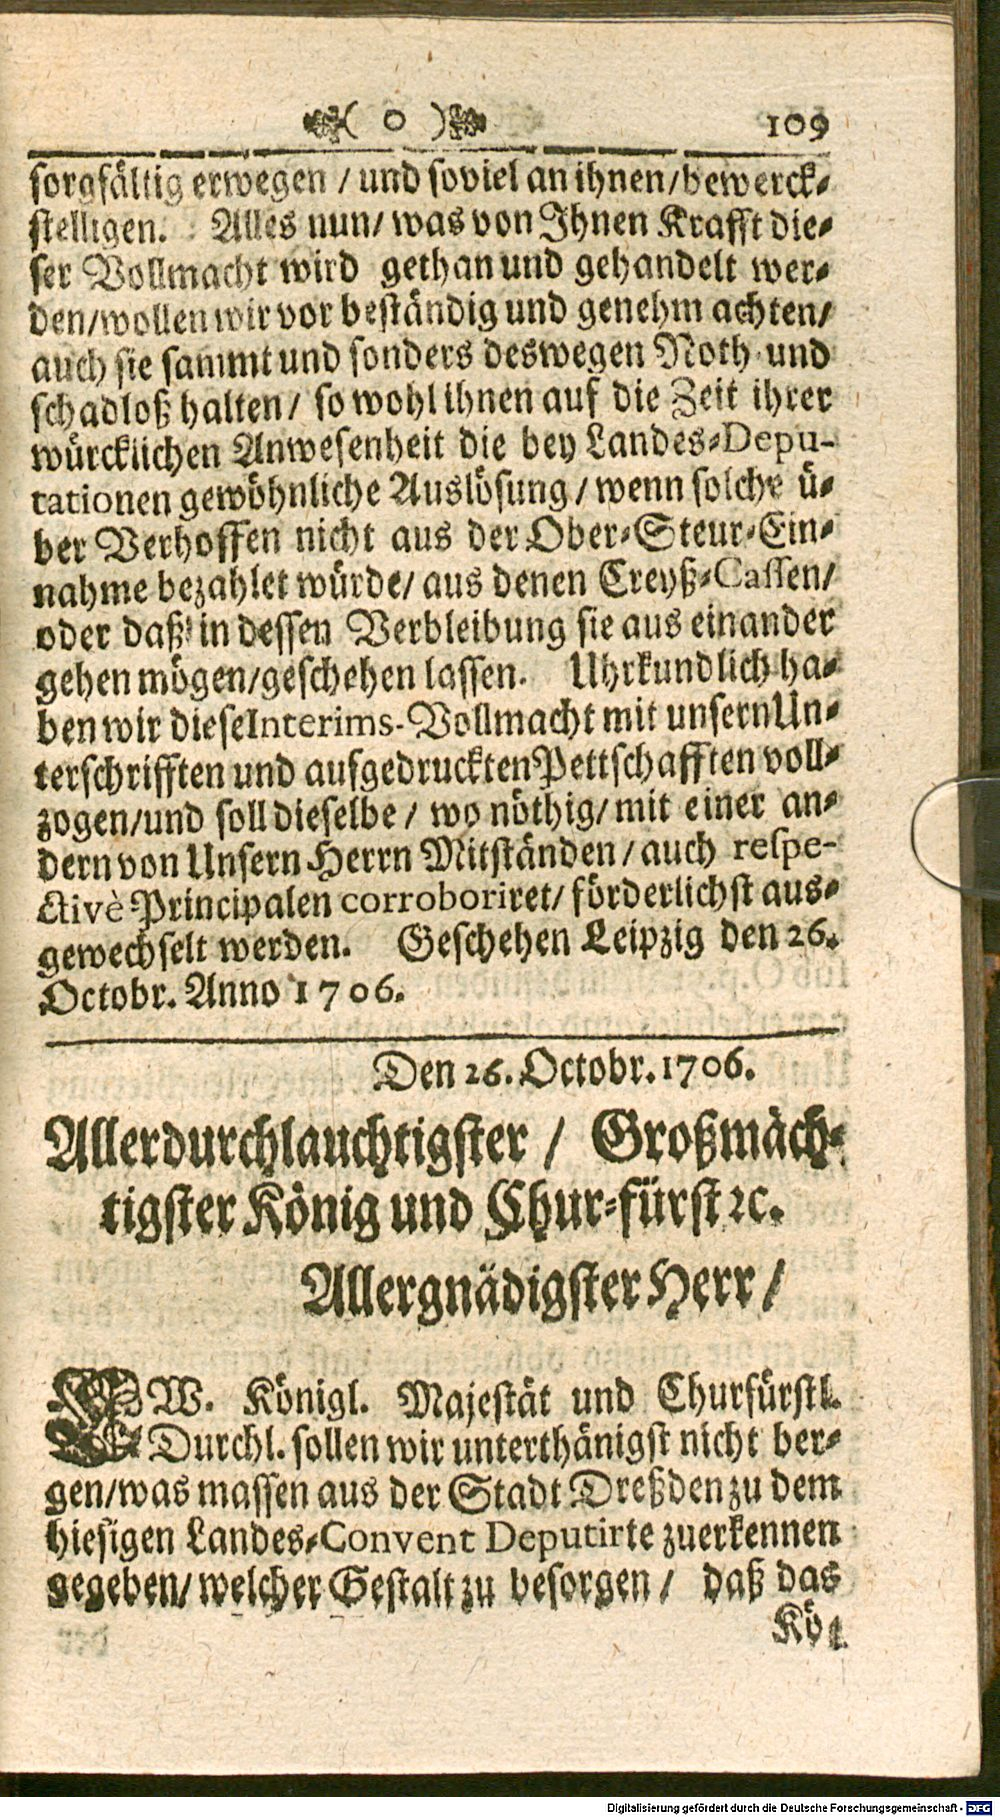 ( 0 ) 109
sorgfältig erwegen / und soviel an ihnen/bewerck-
stelligen. Alles nun/ was von Ihnen Krafft die-
ser Vollmacht wird gethan und gehandelt wer-
den/wollen wir vor beständig und genehm achten/
auch sie sammt und sonders deswegen Noth und
schadloß halten/ so wohl ihnen auf die Zeit ihrer
würcklichen Anwesenheit die bey Landes-Depu-
tationen gewöhnliche Auslösung / wenn solche ü-
ber Verhoffen nicht aus der Ober-Steur-Ein-
nahme bezahlet würde/ aus denen Creyß-Cassen/
oder daß in dessen Verbleibung sie aus einander
gehen mögen/geschehen lassen. Uhrkundlich ha-
ben wir diese Interims-Vollmacht mit unsern Un-
terschrifften und aufgedruckten Pettschafften voll-
zogen/und soll dieselbe / wo nöthig/ mit einer an-
dern von Unsern Herrn Mitständen / auch respe-
ctivè Principalen corroboriret/ förderlichst aus-
gewechselt werden. Geschehen Leipzig den 26.
Octobr. Anno 1706.
Den 26. Octobr. 1706.
Allerdurchlauchtigster / Großmäch-
tigster König und Chur-fürst ꝛc.
Allergnädigster Herr /
EW. Königl. Majestät und Churfürstl.
Durchl. sollen wir unterthänigst nicht ber-
gen/was massen aus der Stadt Dreßden zu dem
hiesigen Landes-Convent Deputirte zuerkennen
gegeben/ welcher Gestalt zu besorgen / daß das
Kö-
Digitalisierung gefördert durch die Deutsche Forschungsgemeinschaft - DFG